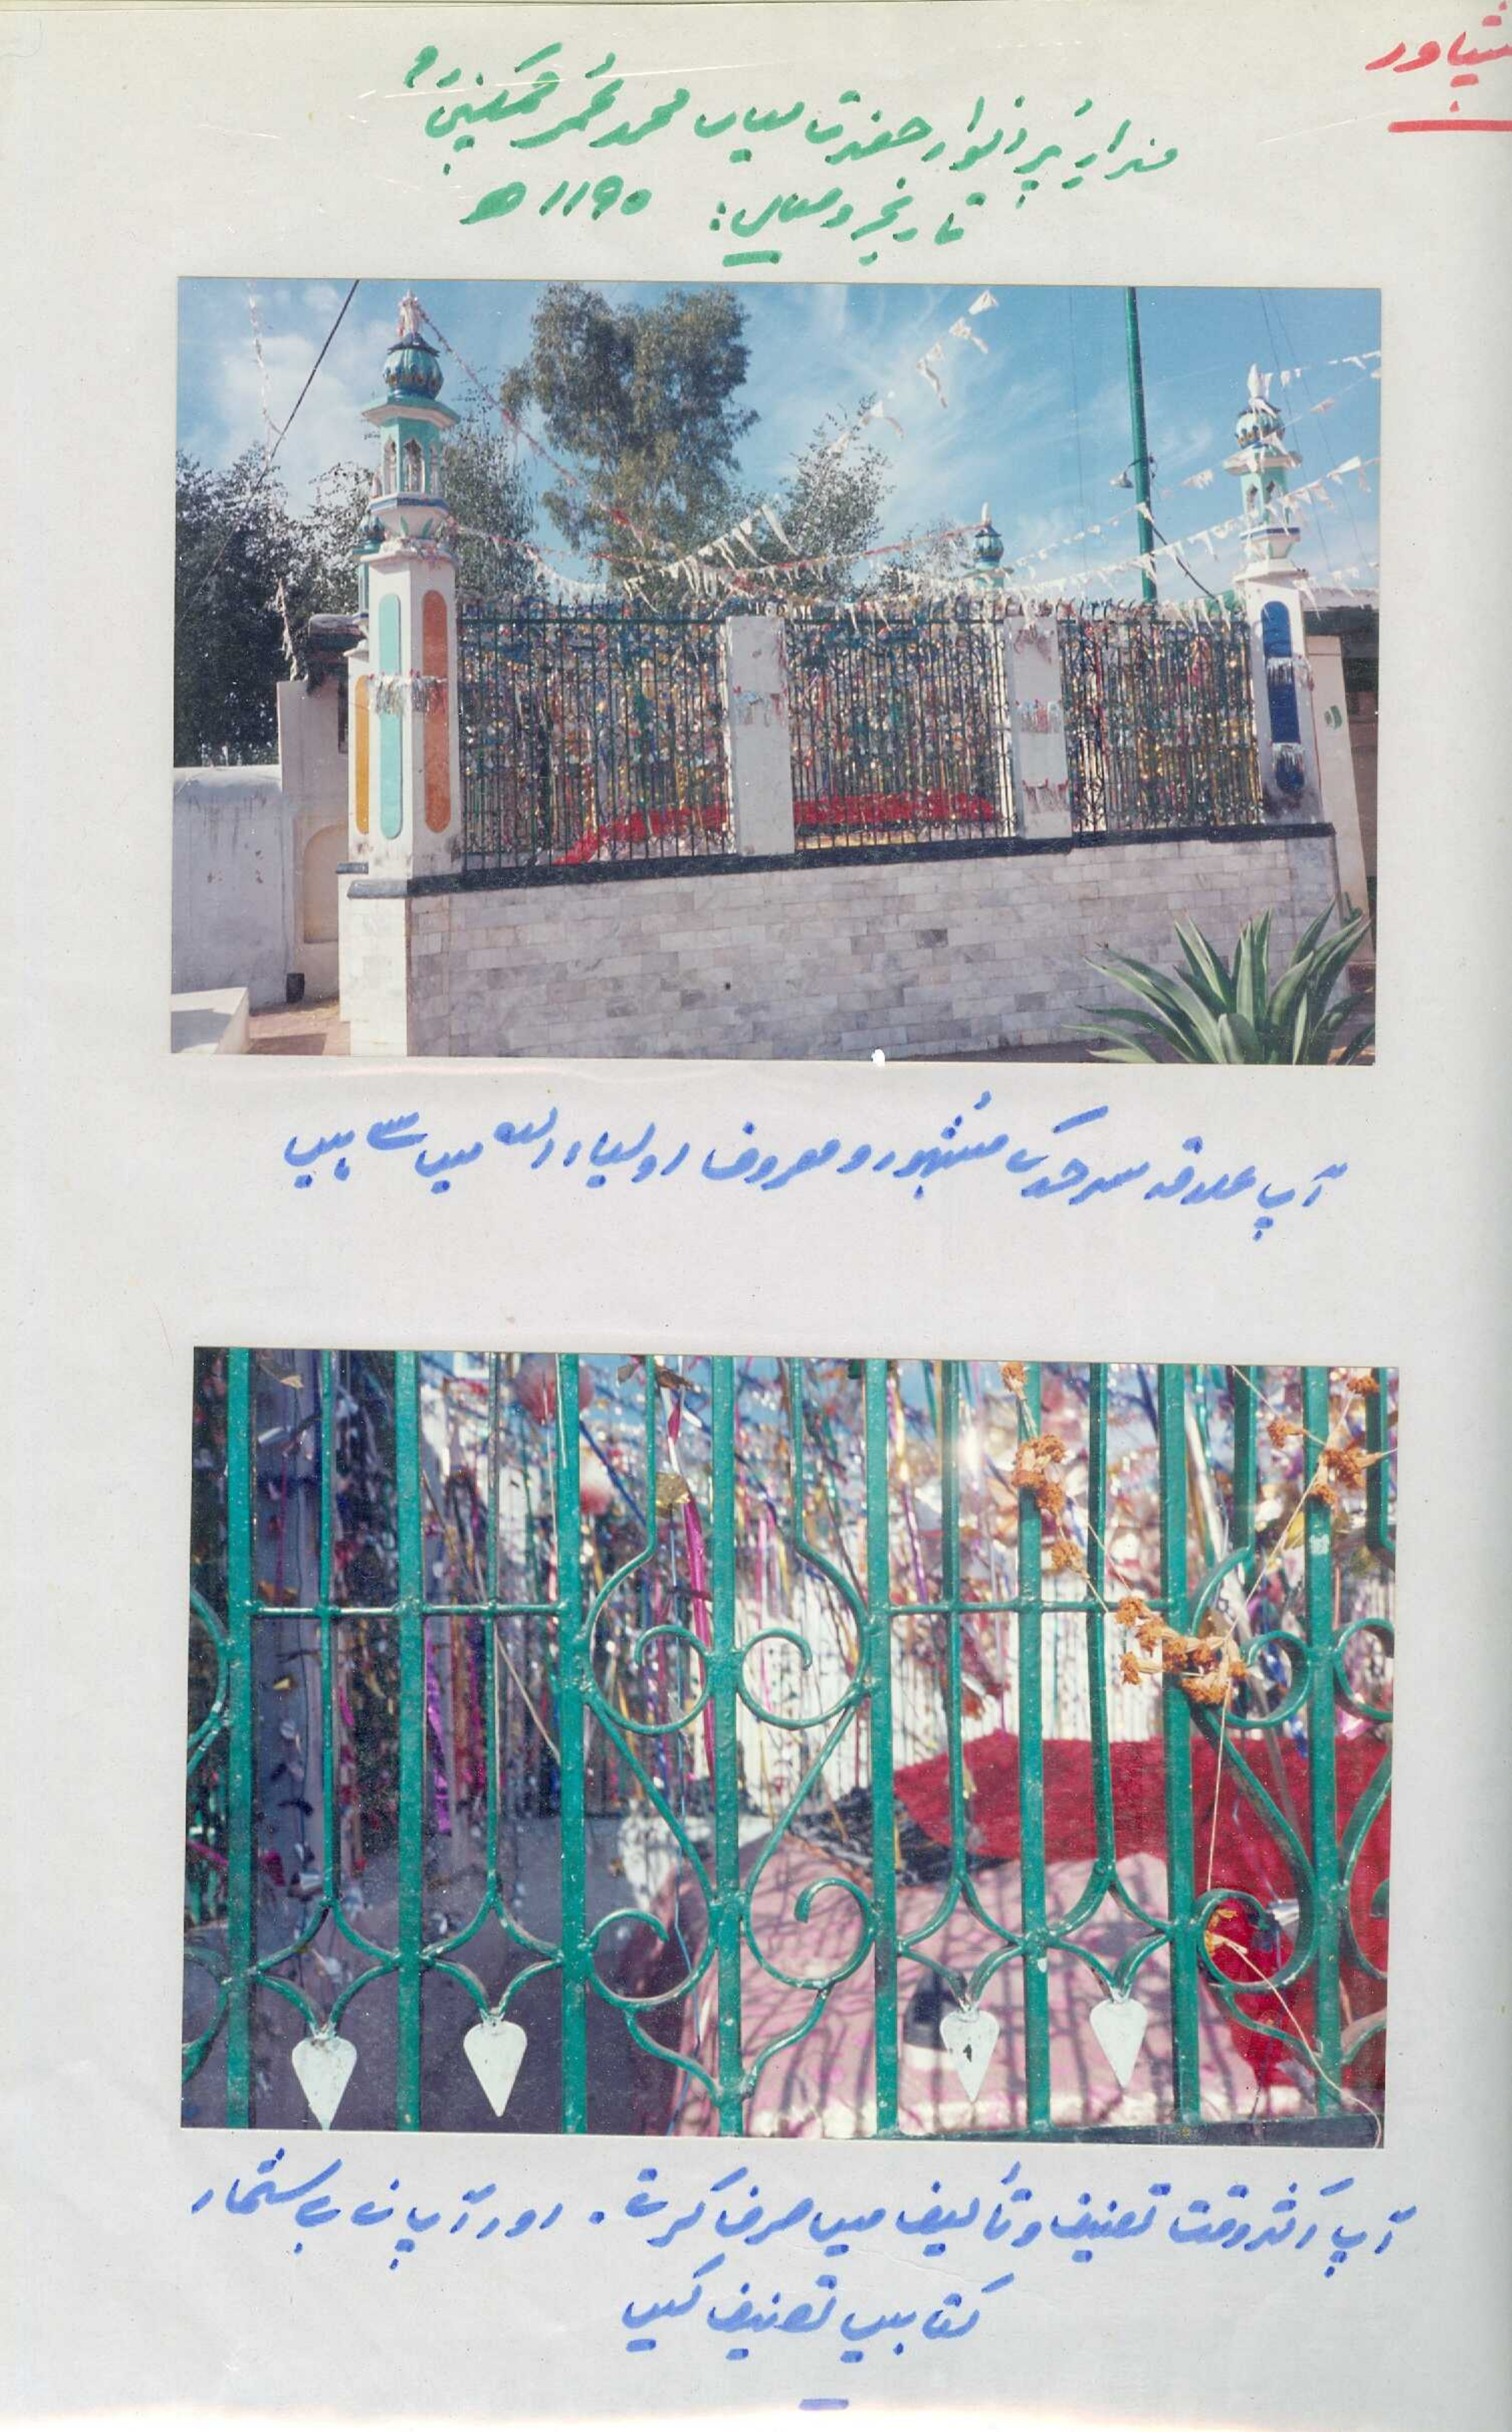 پشاور
مزار پُر انوار حضرت میاں محمد عُمر چمکنیؒ
تاریخِ وصال: ۱۱۹۰ ھ
آپ علاقہ سرحد کے مشہور و معروف اولیاء اللہ میں سے ہیں
آپ اکثر وقت تصنیف و تألیف میں صرف کرتے۔ اور آپ نے بے شمار
کتابیں تصنیف کیں